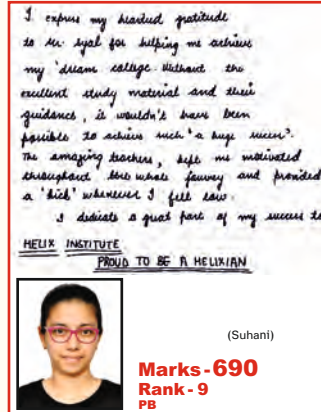 I express my hearted gratitude
to Mr. Syal for helping me achieve
my 'dream college. Without the
excellent study material and their
guidance, it wouldn't have been
possible to achieve such 'a huge success'.
The amazing teachers, kept me motivated
throughout the whole journey and provided
a 'kick' whenever I feel low.
I dedicate a great part of my success to
HELIX INSTITUTE
PROUD TO BE A HELIXIAN
(Suhani)
Marks-690
Rank-9
PB